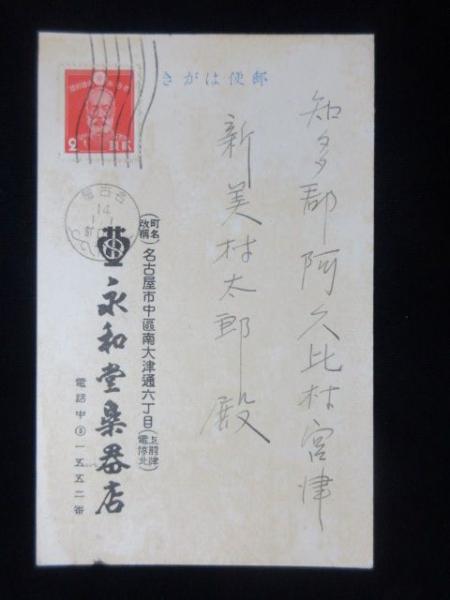 郵便はがき
知多郡阿久比村宮津
新美村太郎殿
(町名改稱)名古屋市中區南大津通六丁目(上前津電停北)
永和堂樂器店
電話中③一五五二番
2
名古屋
14